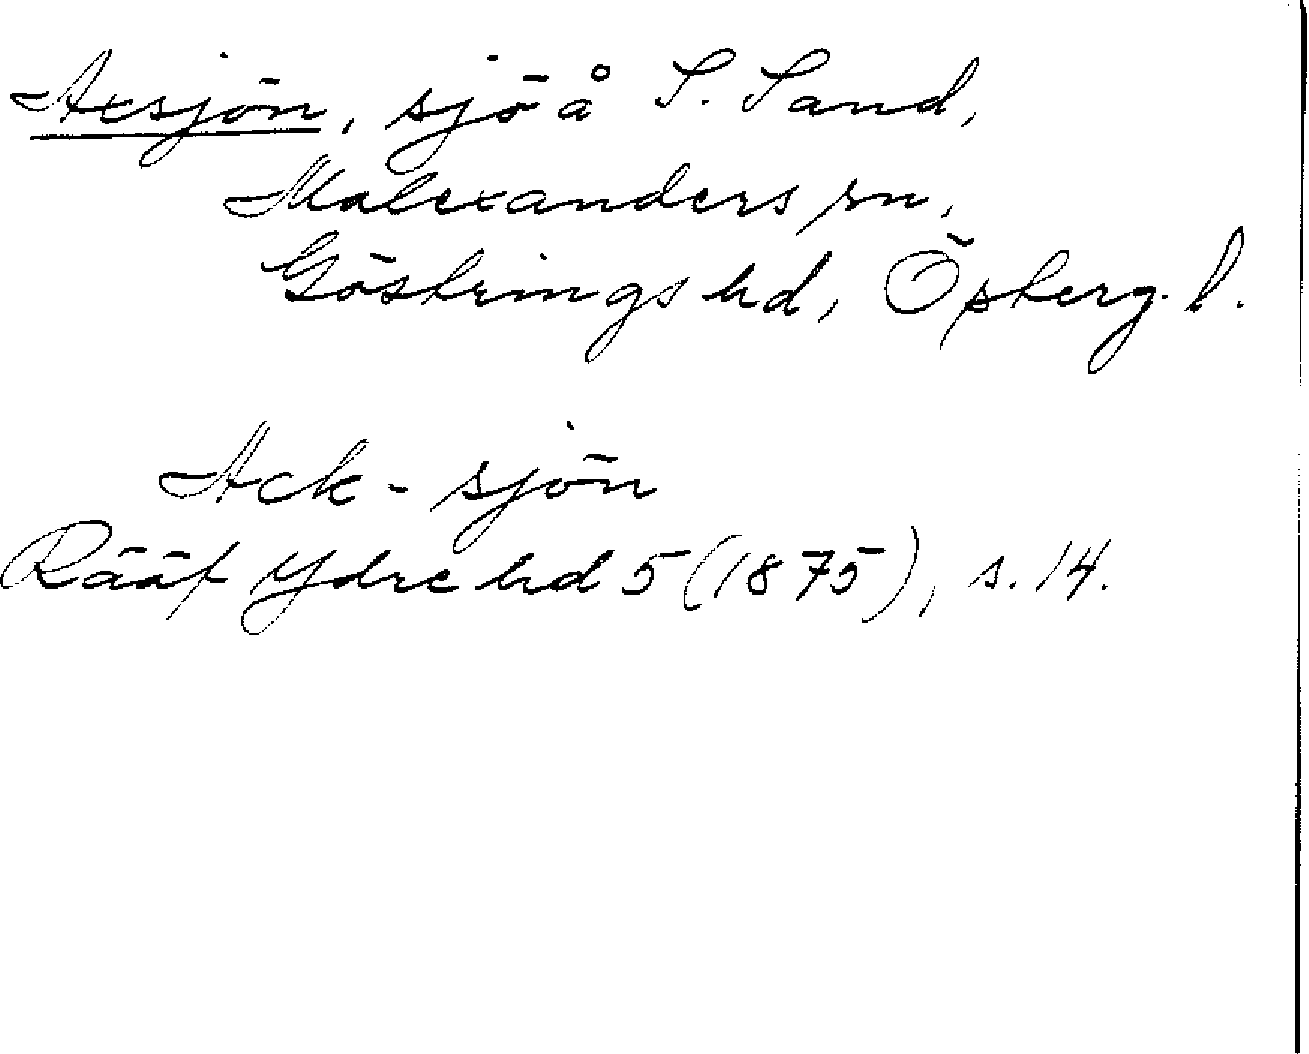 Axsjön, sjö å S. Sand,
Malexanders sn,
Göstrings hd, Österg. l.
Ack-sjön
Rääf Ydre hd 5 (1875), s. 14.